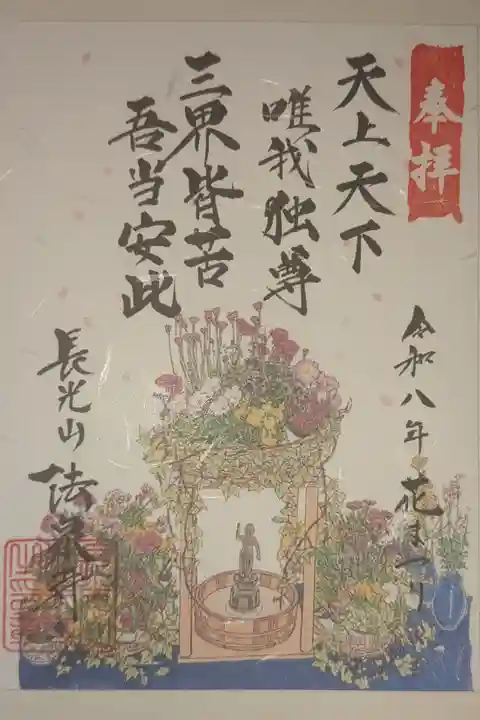 奉拝
天上天下
唯我独尊
三界皆苦
吾当安此
令和八年 花まつり
長光山 法養寺